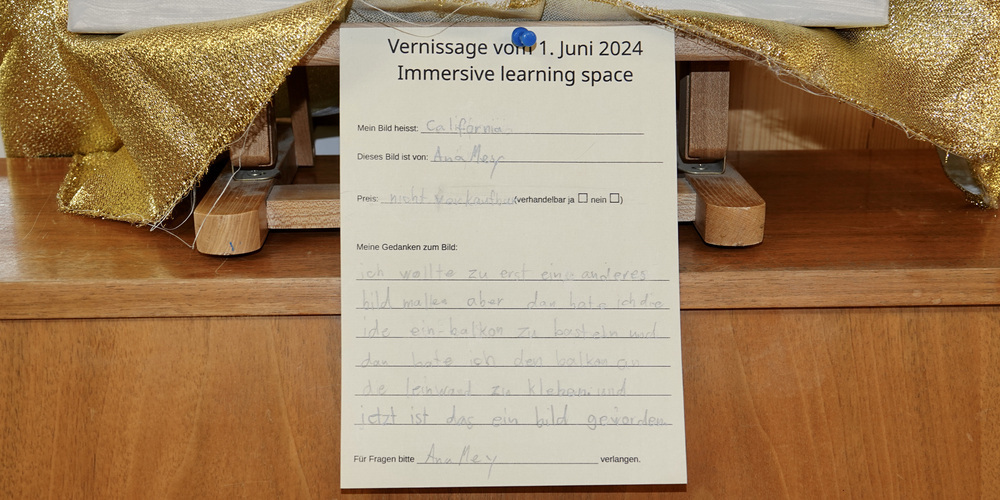 Vernissage vom 1. Juni 2024
Immersive learning space
Mein Bild heisst: California
Dieses Bild ist von: Ana Mey
Preis: nicht (verhandelbar ja ☐ nein ☐)
Meine Gedanken zum Bild:
ich wollte zu erst eine anderes
bild malen aber dan hate ich die
ide ein balkon zu basteln und
dan hate ich den balkon an
de leinwand zu kleben und
jetzt ist das ein bild geworden
Für Fragen bitte Ana Mey verlangen.